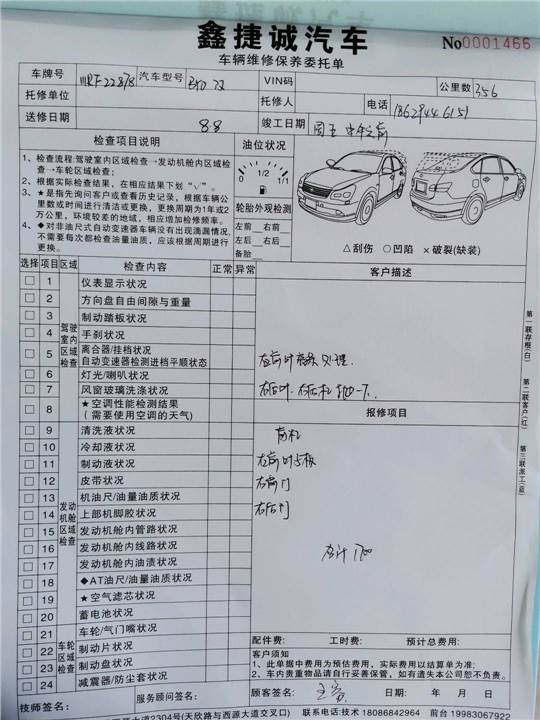 鑫捷诚汽车
No0001466
车辆维修保养委托单
车牌号 汽车型号 VIN码 公里数 356
托修单位 托修人 电话
送修日期 8.8 竣工日期 周五 中午之前
检查项目说明 油位状况
1、检查流程:驾驶室内区域检查→发动机舱内区域检查→车轮区域检查;
2、根据实际检查结果，在相应结果下划“√”。
3、★是指先询问客户或查看历史记录，根据车辆公里数或时间进行清洁或更换，更换周期为1年或2万公里，环境较差的地域，相应增加检修频率。
4、◆对非油尺式自动变速器车辆没有出现滴漏情况，不需要每次都检查油量油质，应该根据周期进行更换。
0 1/2 1/1
轮胎外观检测
左前 右前
左后 右后
备胎
△刮伤 ○凹陷 ×破裂(缺装)
选择 项目 区域 检查内容 正常 异常 客户描述
驾驶室内区域检查
1 仪表显示状况
2 方向盘自由间隙与重量
3 制动踏板状况
4 手刹状况
5 离合器/挂档状况
自动变速器检测进档平顺状态
6 灯光/喇叭状况
7 风窗玻璃洗涤状况
8 ★空调性能检测结果
(需要使用空调的天气)
处理.
报修项目
发动机舱区域检查
9 清洗液状况
10 冷却液状况
11 制动液状况
12 皮带状况
13 机油尺/油量油质状况
14 上部机脚胶状况
15 发动机舱内管路状况
16 发动机舱内线路状况
17 发动机舱内油渍状况
18 ◆AT油尺/油量油质状况
19 ★空气滤芯状况
20 蓄电池状况
前杠
左前叶子板
右前门
右后门
车轮区域检查
21 车轮/气门嘴状况
22 制动片状况
23 制动盘状况
24 减震器/防尘套状况
配件费: 工时费: 预计总费用:
客户须知
1、此单据中费用为预估费用，实际费用以结算单为准;
2、车内贵重物品请自行妥善保管，如有遗失本公司恕不负责。
技师签名: 服务顾问签名: 顾客签名: 日期: 年 月 日
大道2304号(天欣路与西源大道交叉口) 联系电话:技术 18086842964 前台 19983079972
第一联存根(白)
第二联客户(红)
第三联派工(蓝)